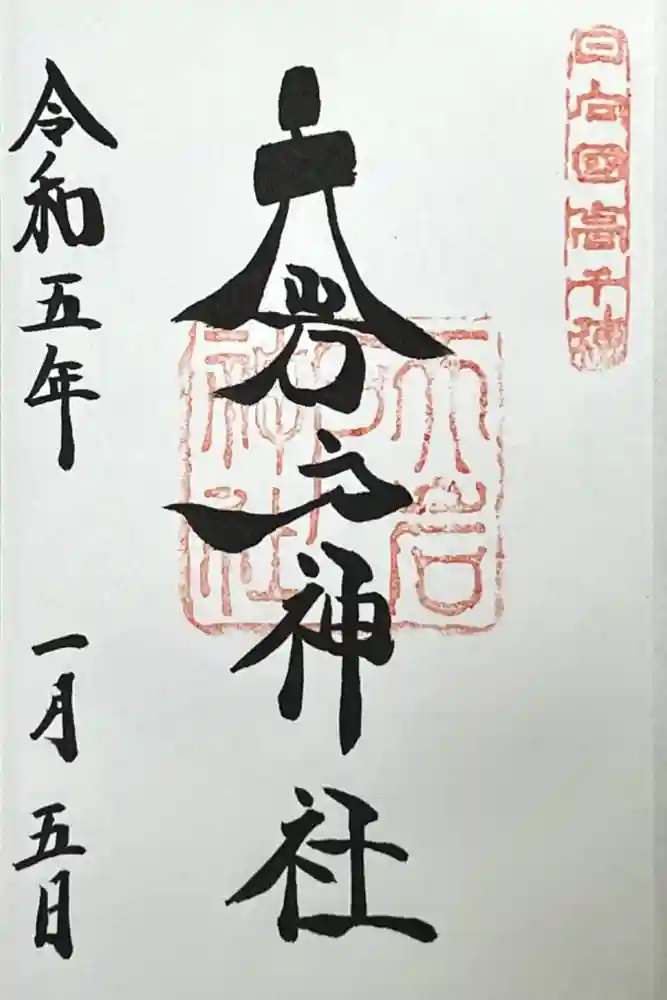 日向国高千穂
天岩戸神社
天岩戸神社
令和五年 一月 五日